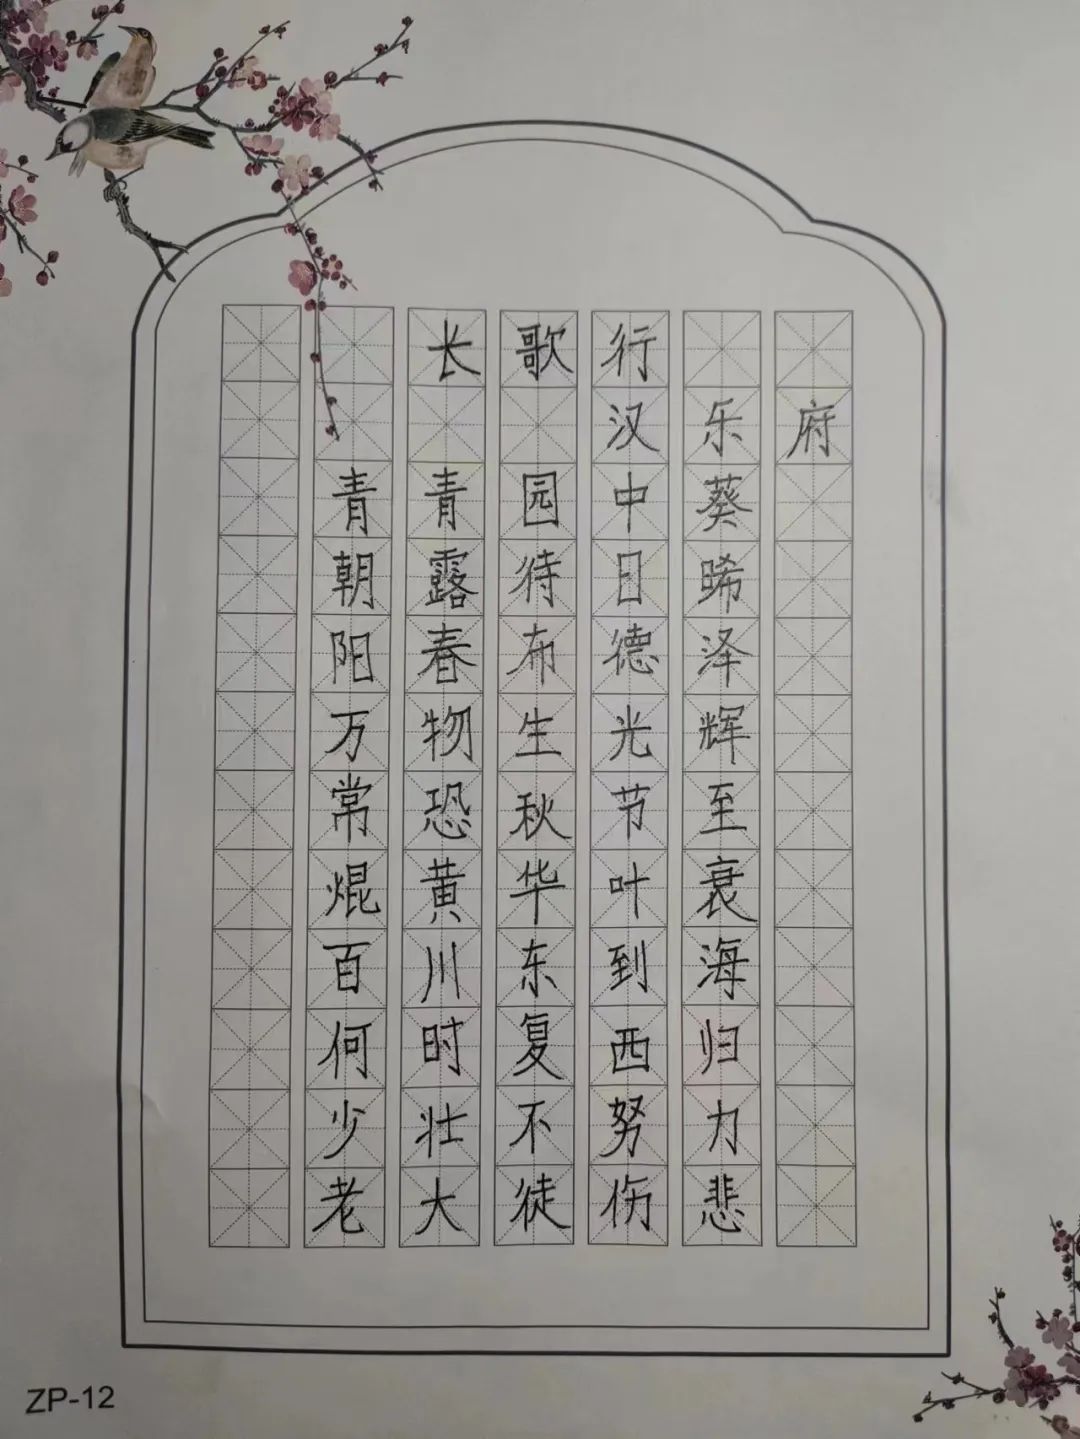 长歌行
汉乐府
青青园中葵
朝露待日晞
阳春布德泽
万物生光辉
常恐秋节至
焜黄华叶衰
百川东到海
何时复西归
少壮不努力
老大徒伤悲
ZP-12